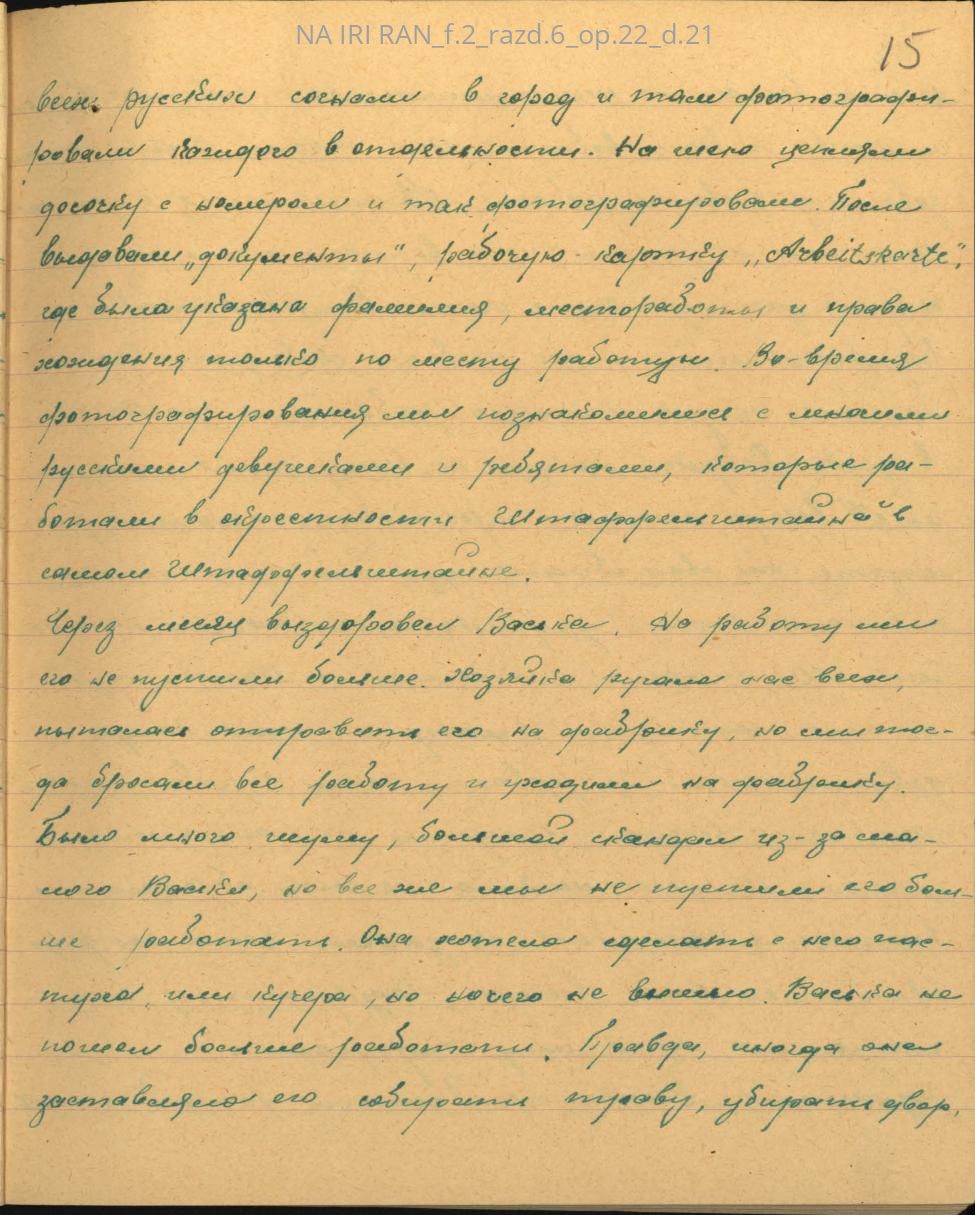 NA IRI RAN_f.2_razd.6_op.22_d.21
15
всех русских согнали в город и там фотографи-
ровали каждого в отдельности. На шею цепляли
досочку с номером и так фотографировали. После
выдавали „документы", рабочую картку „Arbeitskarte",
где была указана фамилия, местоработы и права
хождения только по месту работы. Во-время
фотографирования мы познакомились с многими
русскими девушками и ребятами, которые ра-
ботали в окрестности Штаффельштайна и в
самом Штаффельштайне.
Через месяц выздоровел Васька. На работу мы
его не пустили больше. Хозяйка ругала нас всех,
пыталась отправить его на фабрику, но мы тог-
да бросали все работу и уходили на фабрику.
Было много шуму, большой скандал из-за ма-
лого Васьки, но все же мы не пустили его боль-
ше работать. Она хотела сделать с него пас-
туха, или кучера, но ничего не вышло. Васька не
пошел больше работать. Правда, иногда она
заставляла его собирать траву, убирать двор,